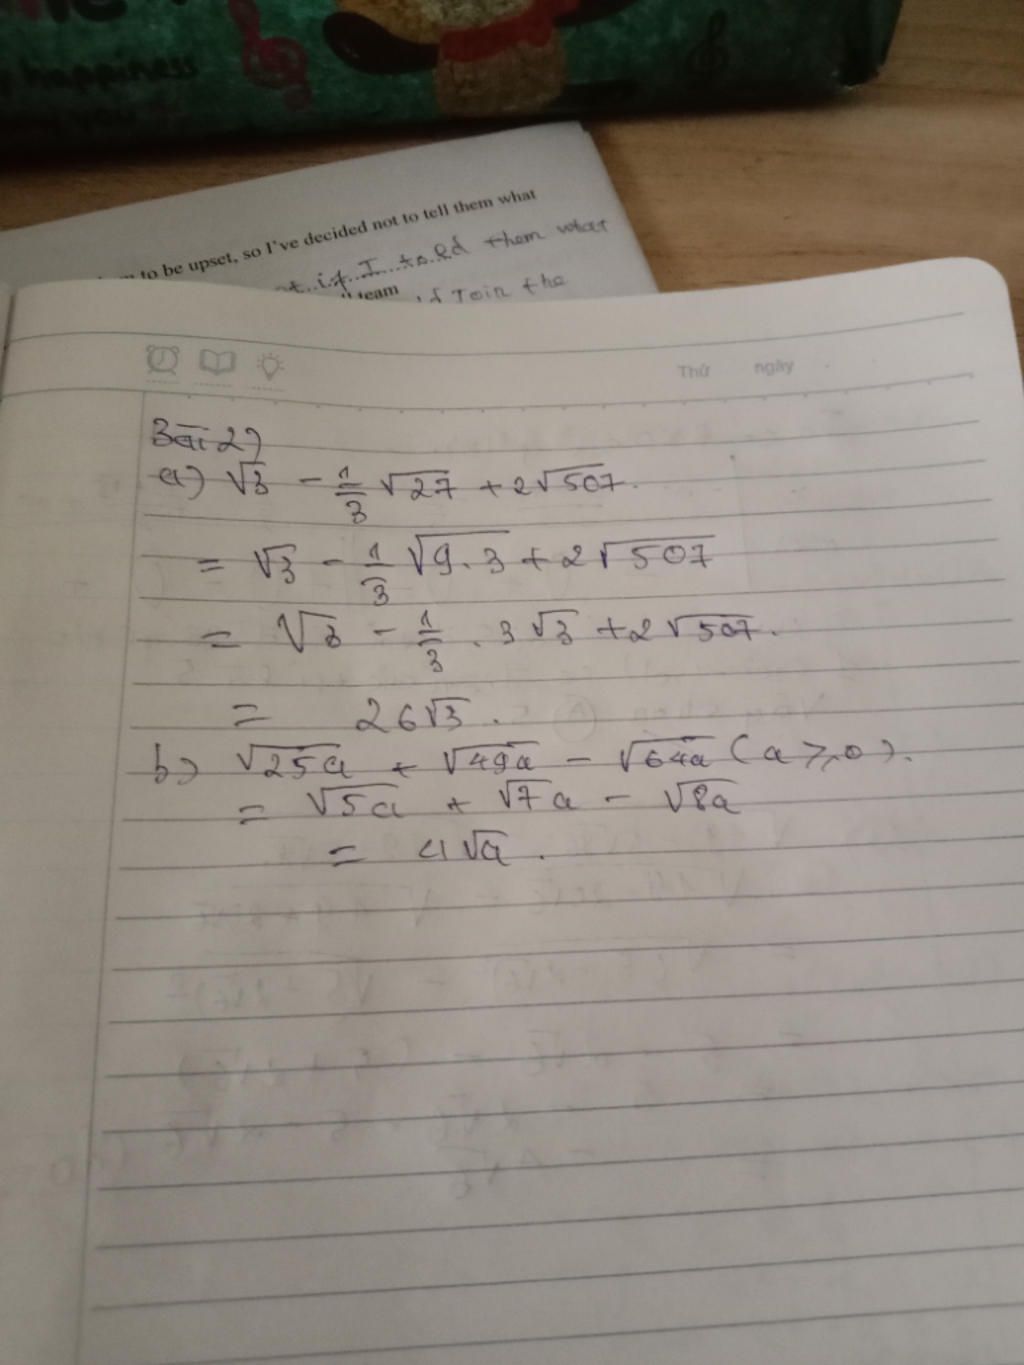 happiness
to be upset, so I've decided not to tell them what
if I told them what
team
Join the
Thứ ngày
Bài 2)
a) √3 - 1/3 √27 + 2√507.
= √3 - 1/3 √9.3 + 2√507
= √3 - 1/3 . 3√3 + 2√507.
= 26√3.
b) √25a + √49a - √64a (a ⩾ 0).
= √5a + √7a - √8a
= 4√a.